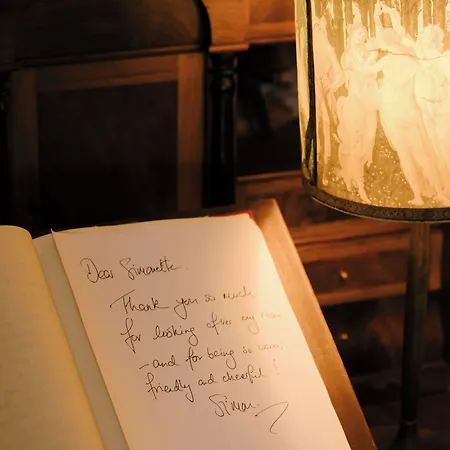 Dear Simonetta,
Thank you so much
for looking after my
– and for being so warm,
friendly and cheerful!
Simon